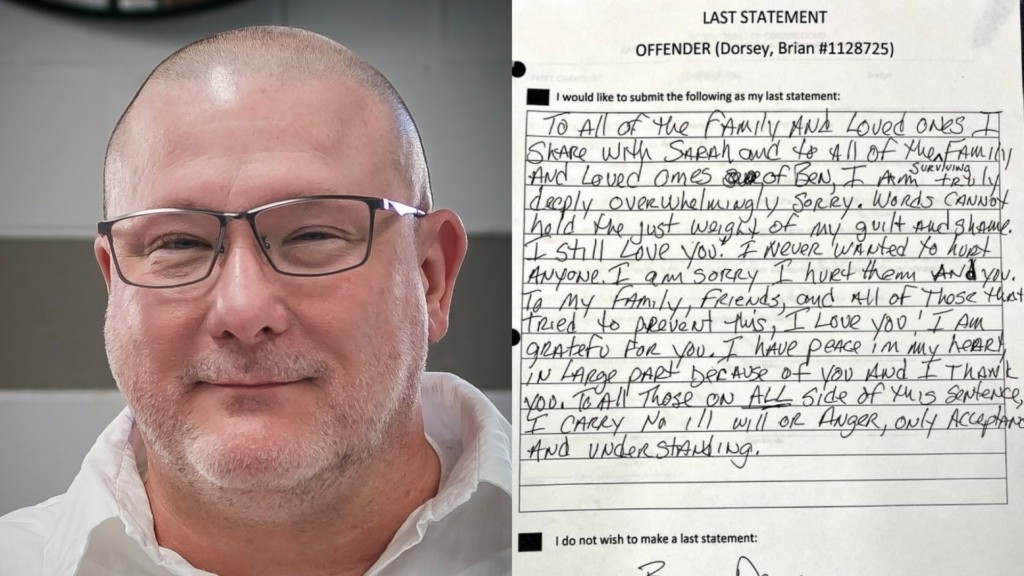 LAST STATEMENT
OFFENDER (Dorsey, Brian #1128725)
I would like to submit the following as my last statement:
To All of the Family And Loved ones I
Share with Sarah and to All of the Family
And Loved ones of Ben, I Am surviving truly
deeply overwhelmingly sorry. Words cannot
hold the just weight of my guilt and shame.
I still love you! I never wanted to hurt
anyone. I am sorry I hurt them and you.
To my family, friends, and all of those that
tried to prevent this, I love you! I am
gratefu for you. I have peace in my heart
in large part because of you and I thank
you. To all those on ALL side of this sentence,
I carry no ill will or anger, only acceptan
and understanding.
I do not wish to make a last statement: